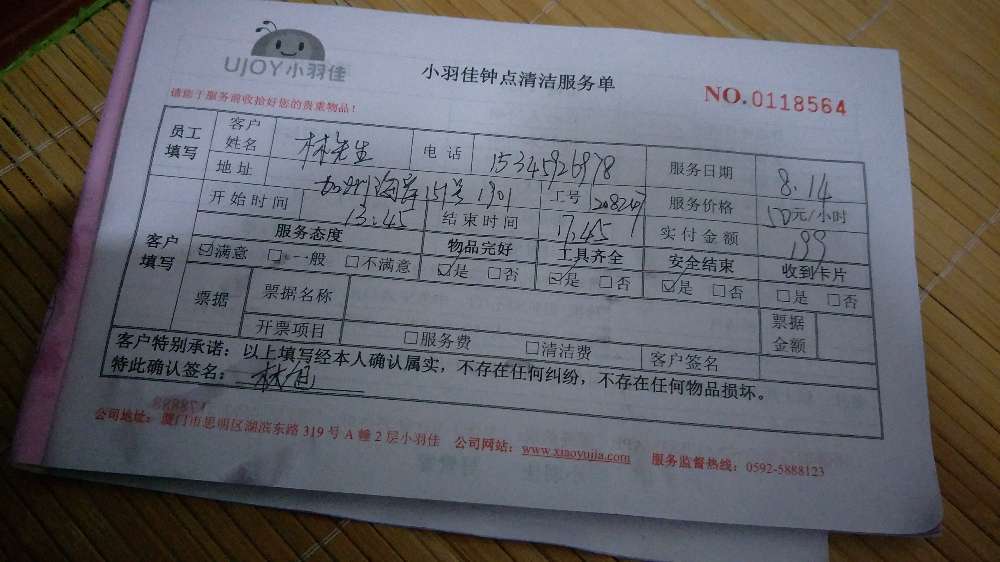 UJOY小羽佳
小羽佳钟点清洁服务单
NO.0118564
请您于服务前收拾好您的贵重物品！
员工填写 客户姓名 林先生 电话 15345926978 服务日期 8.14
地址 海岸151号1901 工号 服务价格 50元/小时
客户填写 开始时间 13:45 结束时间 17:45 实付金额 199
服务态度 物品完好 工具齐全 安全结束 收到卡片
☑满意 □一般 □不满意 ☑是 □否 ☑是 □否 ☑是 □否 □是 □否
票据 票据名称 票据金额
开票项目 □服务费 □清洁费 客户签名
客户特别承诺：以上填写经本人确认属实，不存在任何纠纷，不存在任何物品损坏。
特此确认签名：林
公司地址：厦门市思明区湖滨东路319号A幢2层小羽佳 公司网站：www.xiaoyujia.com 服务监督热线：0592-5888123